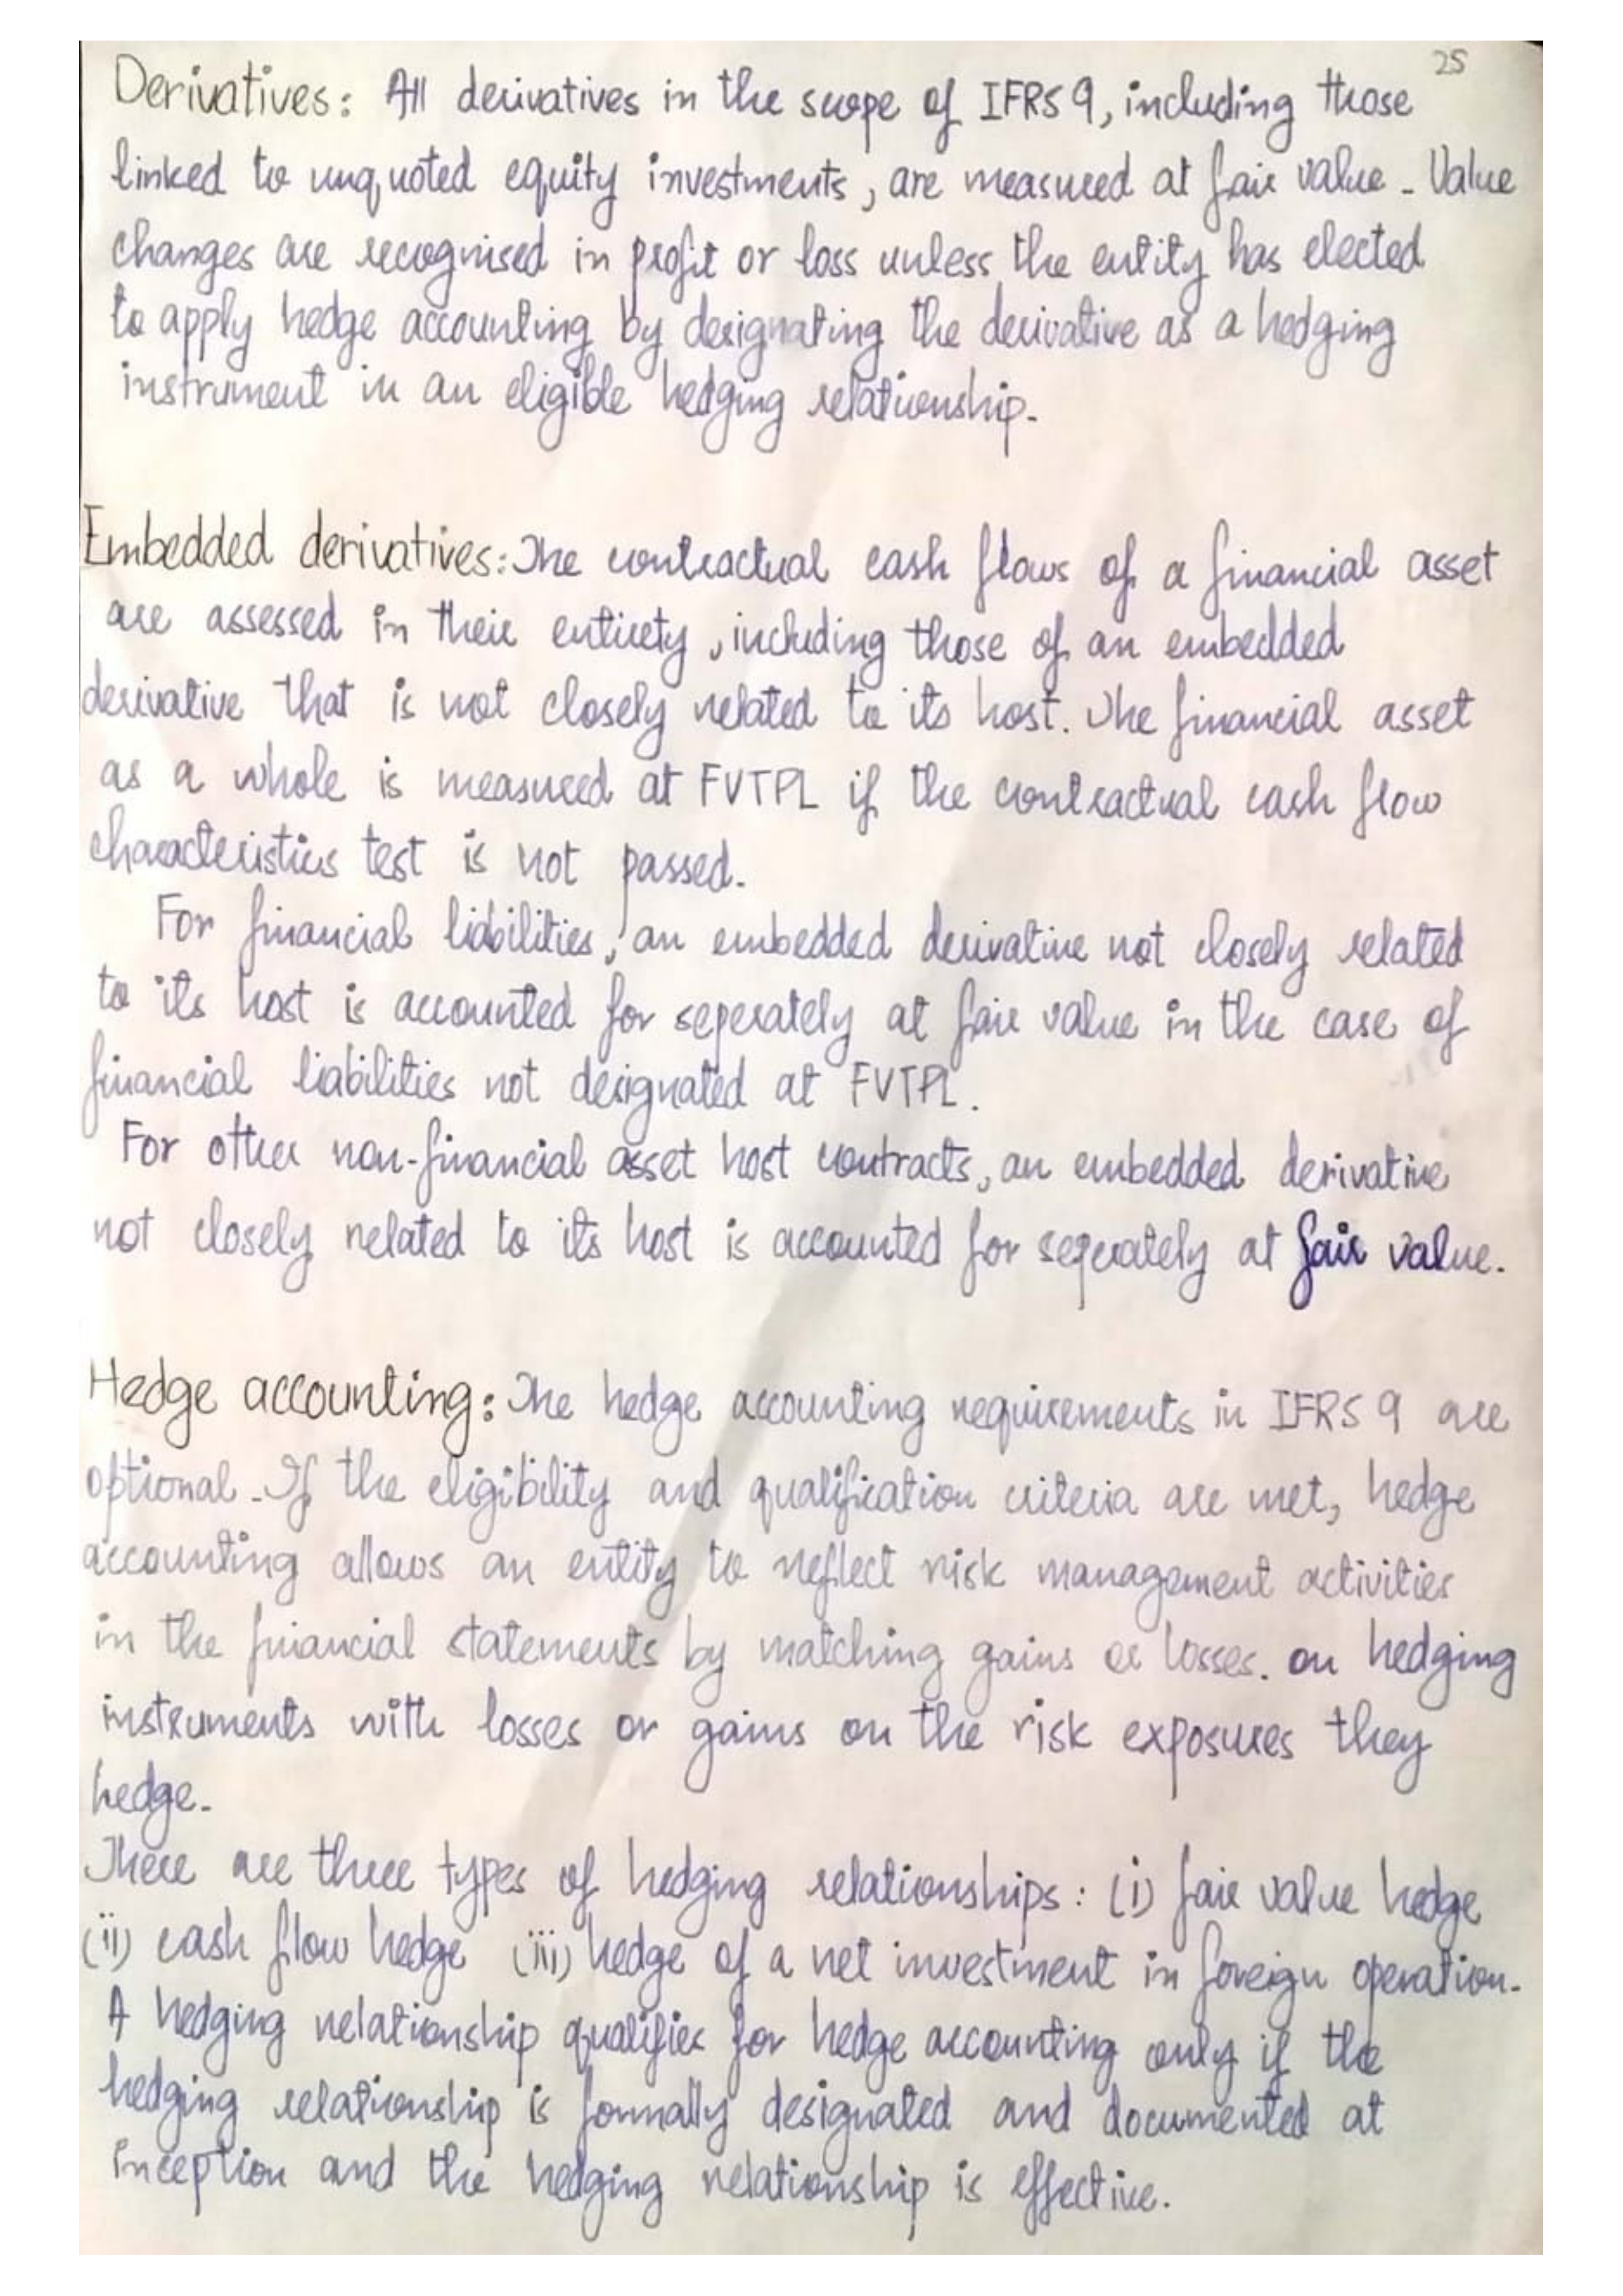 25
Derivatives: All derivatives in the scope of IFRS 9, including those
linked to unquoted equity investments, are measured at fair value. Value
changes are recognised in profit or loss unless the entity has elected
to apply hedge accounting by designating the derivative as a hedging
instrument in an eligible hedging relationship.
Embedded derivatives: The contractual cash flows of a financial asset
are assessed in their entirety, including those of an embedded
derivative that is not closely related to its host. The financial asset
as a whole is measured at FVTPL if the contractual cash flow
characteristics test is not passed.
For financial liabilities, an embedded derivative not closely related
to its host is accounted for seperately at fair value in the case of
financial liabilities not designated at FVTPL.
For other non-financial asset host contracts, an embedded derivative
not closely related to its host is accounted for seperately at fair value.
Hedge accounting: The hedge accounting requirements in IFRS 9 are
optional. If the eligibility and qualification criteria are met, hedge
accounting allows an entity to reflect risk management activities
in the financial statements by matching gains or losses. on hedging
instruments with losses or gains on the risk exposures they
hedge.
There are three types of hedging relationships: (i) fair value hedge
(ii) cash flow hedge (iii) hedge of a net investment in foreign operation.
A hedging relationship qualifies for hedge accounting only if the
hedging relationship is formally designated and documented at
inception and the hedging relationship is effective.